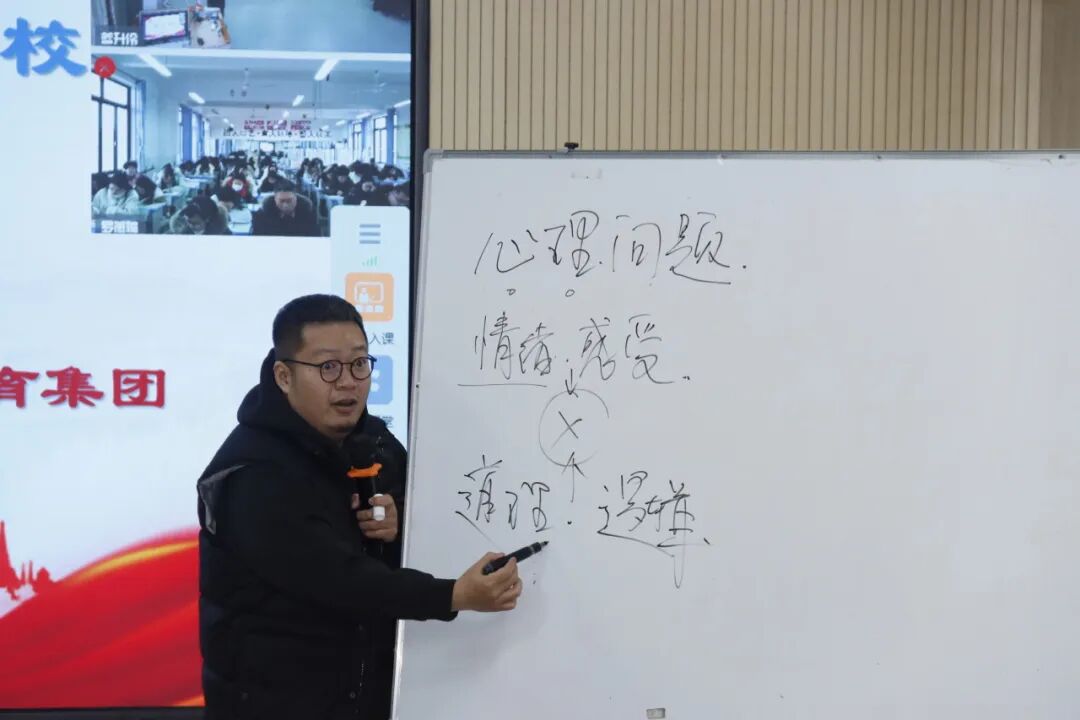 校
入课
育集团
心理问题.
情绪.感受.
×
道理.逻辑、